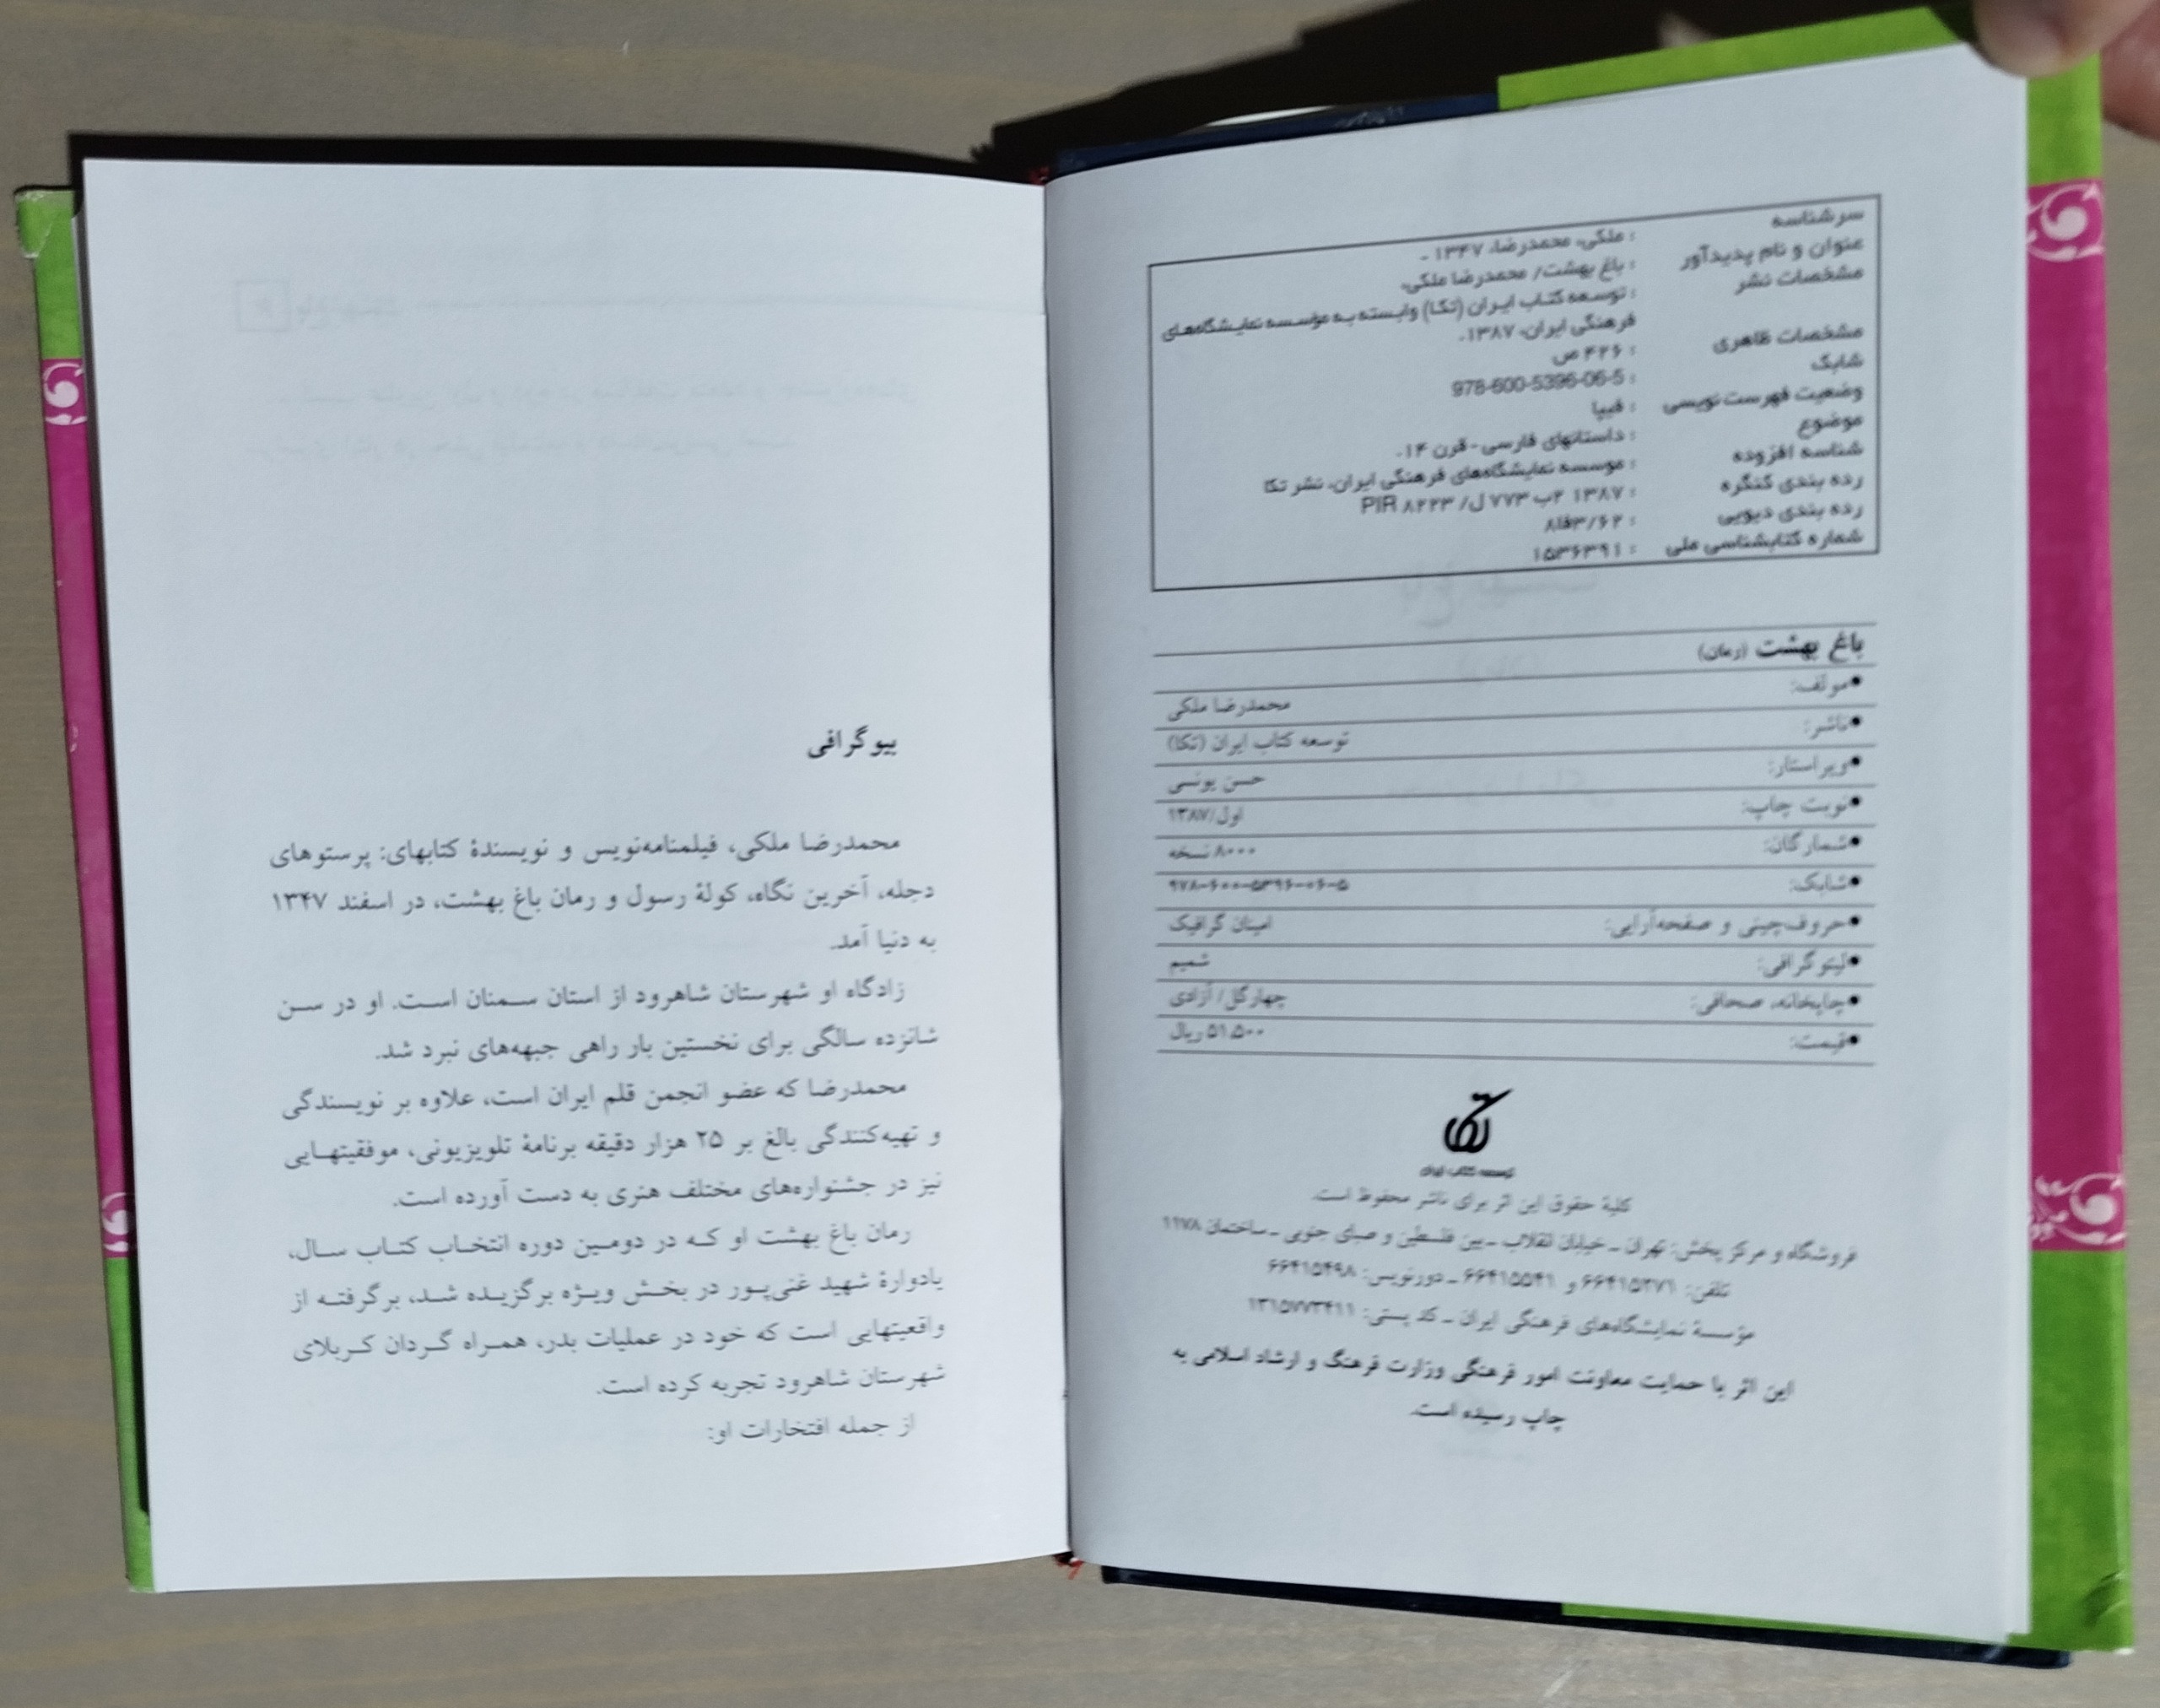 سرشناسه : ملکی، محمدرضا، ۱۳۴۷ -
عنوان و نام پدیدآور : باغ بهشت/ محمدرضا ملکی.
مشخصات نشر : توسعه کتاب ایران (تکا) وابسته به مؤسسه نمایشگاههای
فرهنگی ایران، ۱۳۸۷.
مشخصات ظاهری : ۴۲۶ ص
شابک : 978-600-5396-06-5
وضعیت فهرست‌نویسی : فیپا
موضوع : داستانهای فارسی - قرن ۱۴.
شناسه افزوده : موسسه نمایشگاه‌های فرهنگی ایران، نشر تکا
رده بندی کنگره : ۱۳۸۷ ۲ب ۷۷۳ ل/ PIR ۸۲۲۳
رده بندی دیویی : ۸فا۳/۶۲
شماره کتابشناسی ملی : ۱۵۳۶۳۹۱
باغ بهشت (رمان)
●مولف: محمدرضا ملکی
●ناشر: توسعه کتاب ایران (تکا)
●ویراستار: حسن یونسی
●نوبت چاپ: اول/۱۳۸۷
●شمارگان: ۸۰۰۰ نسخه
●شابک: ۹۷۸-۶۰۰-۵۳۹۶-۰۶-۵
●حروف‌چینی و صفحه‌آرایی: امینان گرافیک
●لیتوگرافی: شمیم
●چاپخانه، صحافی: چهارگل/ آزادی
●قیمت: ۵۱.۵۰۰ ریال
تکا
توسعه کتاب ایران
کلیهٔ حقوق این اثر برای ناشر محفوظ است.
فروشگاه و مرکز پخش: تهران ـ خیابان انقلاب ـ بین فلسطین و صبای جنوبی ـ ساختمان ۱۱۷۸
تلفن: ۶۶۴۱۵۲۷۱ و ۶۶۴۱۵۵۴۱ ـ دورنویس: ۶۶۴۱۵۴۹۸
مؤسسهٔ نمایشگاه‌های فرهنگی ایران ـ کد پستی: ۱۳۱۵۷۷۳۴۱۱
این اثر با حمایت معاونت امور فرهنگی وزارت فرهنگ و ارشاد اسلامی به
چاپ رسیده است.
بیوگرافی
محمدرضا ملکی، فیلمنامه‌نویس و نویسندهٔ کتابهای: پرستوهای
دجله، آخرین نگاه، کولهٔ رسول و رمان باغ بهشت، در اسفند ۱۳۴۷
به دنیا آمد.
زادگاه او شهرستان شاهرود از استان سمنان است. او در سن
شانزده سالگی برای نخستین بار راهی جبهه‌های نبرد شد.
محمدرضا که عضو انجمن قلم ایران است، علاوه بر نویسندگی
و تهیه‌کنندگی بالغ بر ۲۵ هزار دقیقه برنامهٔ تلویزیونی، موفقیتهایی
نیز در جشنواره‌های مختلف هنری به دست آورده است.
رمان باغ بهشت او که در دومین دوره انتخاب کتاب سال،
یادوارهٔ شهید غنی‌پور در بخش ویژه برگزیده شد، برگرفته از
واقعیتهایی است که خود در عملیات بدر، همراه گردان کربلای
شهرستان شاهرود تجربه کرده است.
از جمله افتخارات او: